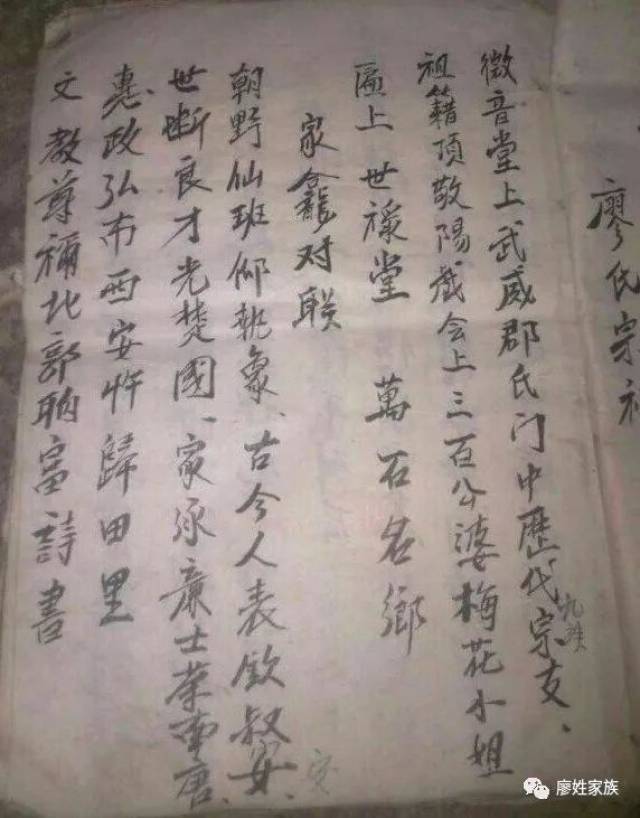 廖氏宗祠
徵音堂上武威郡氏门中歷代宗支、
九族
祖籍頂敬陽戲会上三百公婆梅花小姐
匾上 世祿堂 萬石名鄉
家龕对联
朝野仙班仰執象、古今人表欽叔安、
安
世断良才光楚國、家承廉士荣南唐、
惠政弘布西安忤歸田里
文教尊稱北郭聃富詩書
廖姓家族